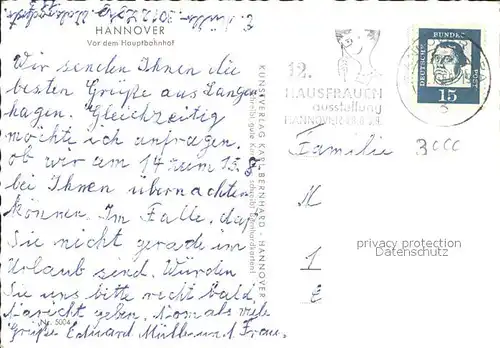 HANNOVER
Vor dem Hauptbahnhof
Wir senden Ihnen die
besten Grüße aus Langen
hagen. Gleichzeitig
möchte ich anfragen,
ob wir am 14 zum 15.8
bei Ihnen übernachten
können. Im Falle, daß
Sie nicht gerade im
Urlaub sind. Würden
Sie uns bitte recht bald
Naricht geben. Nomals viele
Grüße Eduard Müller u. Frau.
Nr. 5004
KUNSTVERLAG KARL BERNHARD - HANNOVER
12.
HAUSFRAUEN
ausstellung
HANNOVER
DEUTSCHE
BUNDES
POST
15
Familie
3000
M
1
E
privacy protection
Datenschutz